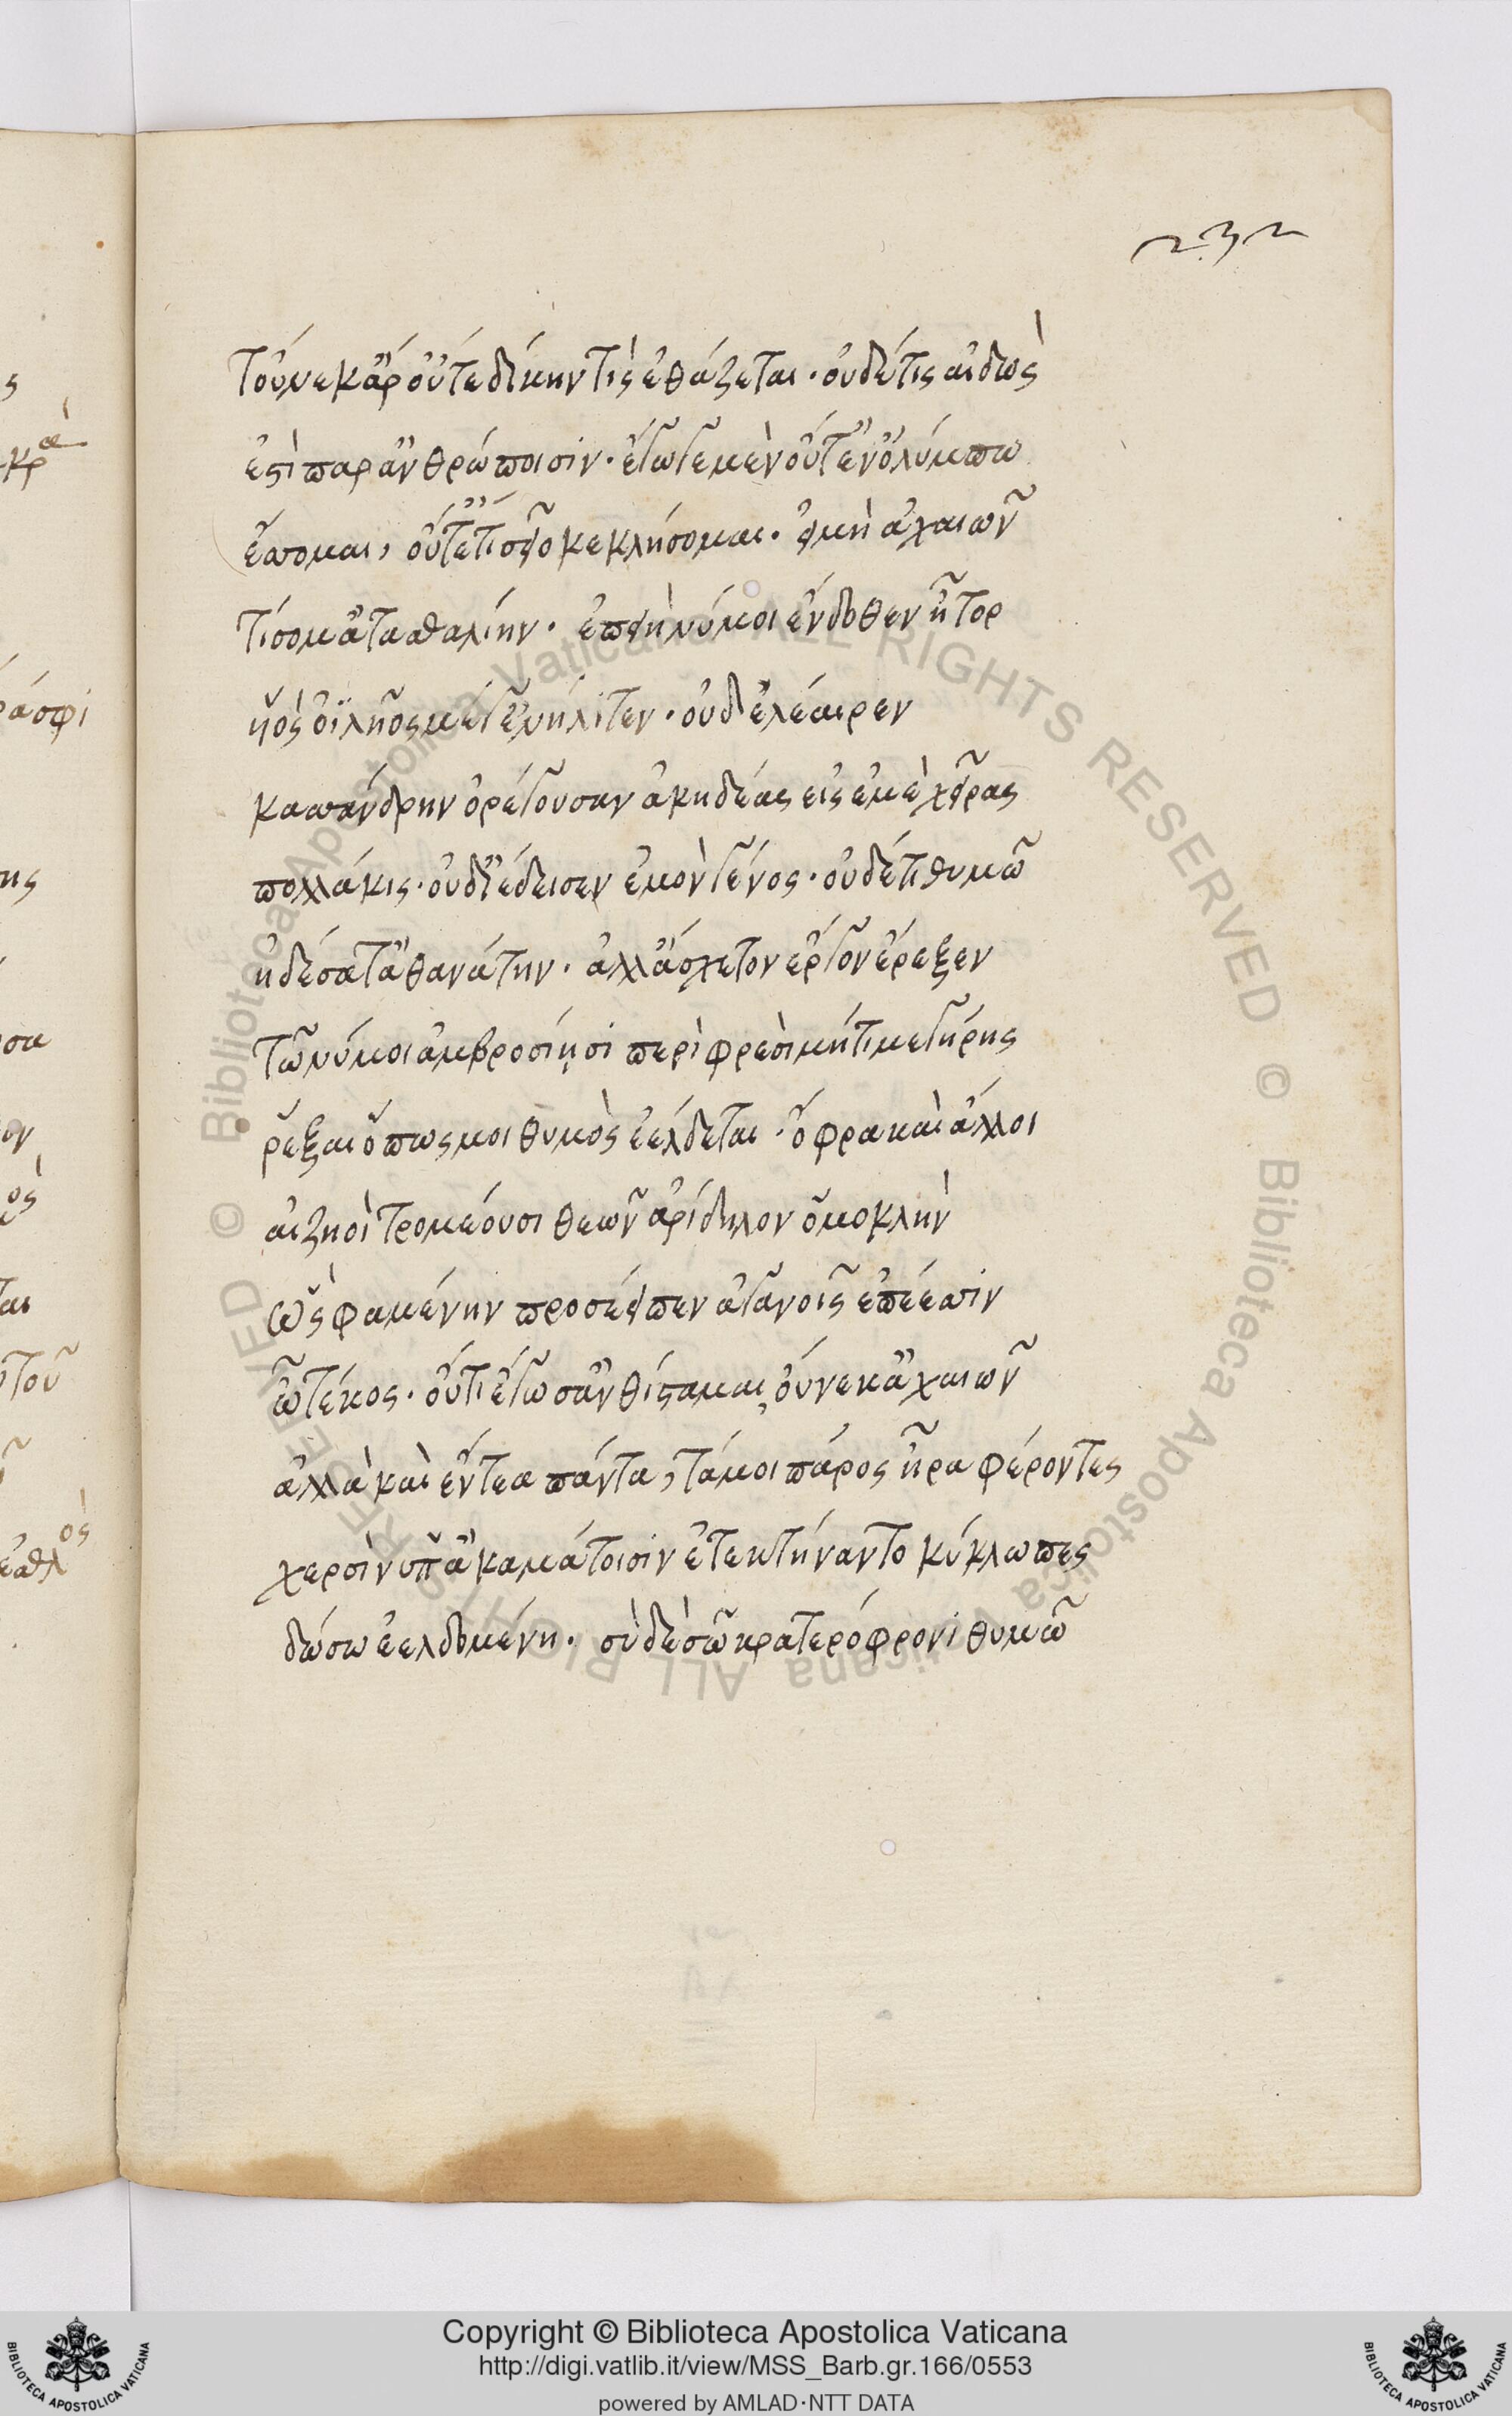 232
τοὔνεκ ἂρ οὔτε δίκην τίς ἐθάζεται· οὐδέ τις αἰδὼς
ἐστὶ παρ ἀνθρώποισιν· ἐγωγε μὲν οὔτ ἐν ὀλύμπω
ἔσσομαι, οὔτ ἔτι σεῖο κεκλήσομαι. εἰ μὴ ἀχαιῶν
τίσομ ἀτασθαλίην· ἐπεὶ ἠ νύ μοι ἔνδοθεν ἦτορ
νηὸς ὀϊλῆος μέγ ἐνήλιτεν· οὐδ ἐλέαιρεν
κασσάνδρην ὀρέγουσαν ἀκηδέας εἰς ἐμὲ χεῖρας
πολλάκις· οὐδ ἔδεισεν ἐμὸν γένος· οὐδέ τι θυμῶ
ἠδέσατ ἀθανάτην. ἀλλ ἄσχετον ἔργον ἔρεξεν
τῶ νύ μοι ἀμβροσίῃσι περὶ φρεσὶ μή τι μεγήρης
ῥέξαι ὅπως μοι θυμὸς ἐέλδεται· ὄφρα καὶ ἄλλοι
αἰζηοὶ τρομέουσι θεῶν ἀρίδηλον ὁμοκλὴν
ὣς φαμένην προσέειπεν ἀγανοῖς ἐπέεσσιν
ὦ τέκος· οὔτι ἔγωγ σ ἀνθίσταμαι, οὕνεκ ἀχαιῶν
ἀλλὰ καὶ ἔντεα πάντα, τά μοι πάρος ἦρα φέροντες
χερσὶν ὑπ ἀκαμάτοισιν ἐτεκτήναντο κύκλωπες
δώσω ἐελδομένη· σὺ δὲ σῶ κρατερόφρονι θυμῶ
© Biblioteca Apostolica Vaticana ALL RIGHTS RESERVED © Biblioteca Apostolica Vaticana ALL RIGHTS RESERVED
Copyright © Biblioteca Apostolica Vaticana
http://digi.vatlib.it/view/MSS_Barb.gr.166/0553
powered by AMLAD·NTT DATA
BIBLIOTECA APOSTOLICA VATICANA
BIBLIOTECA APOSTOLICA VATICANA